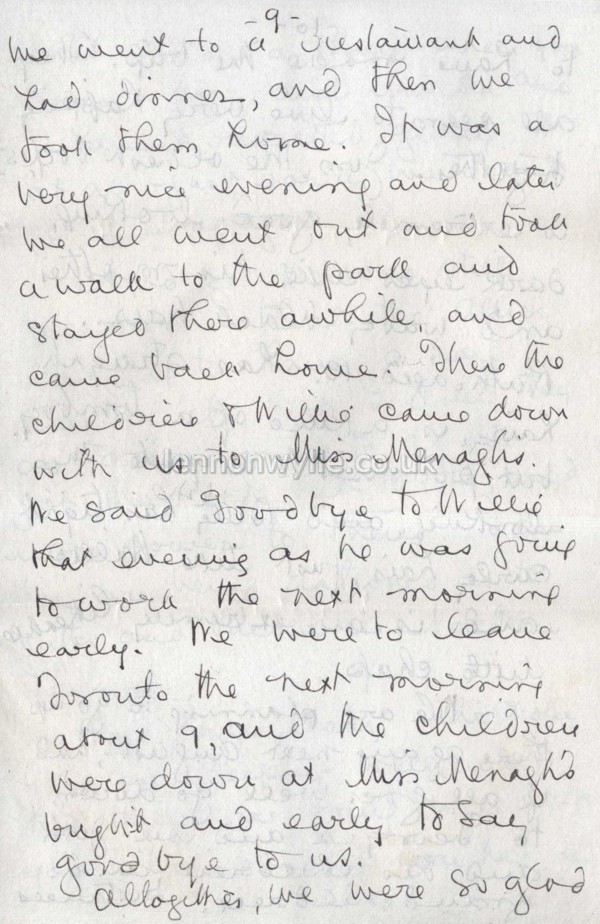 -9-
We went to a restaurant and
had dinner, and then we
took them home. It was a
very nice evening and later
we all went out and took
a walk to the park and
stayed there awhile and
came back home. Then the
children & Willie came down
with us to Miss Menaghs.
lennonwylie.co.uk
We said goodbye to Willie
that evening as he was going
to work the next morning
early. We were to leave
Toronto the next morning
about 9, and the children
were down at Miss Menagh's
bright and early to say
goodbye to us.
Altogether, we were so glad